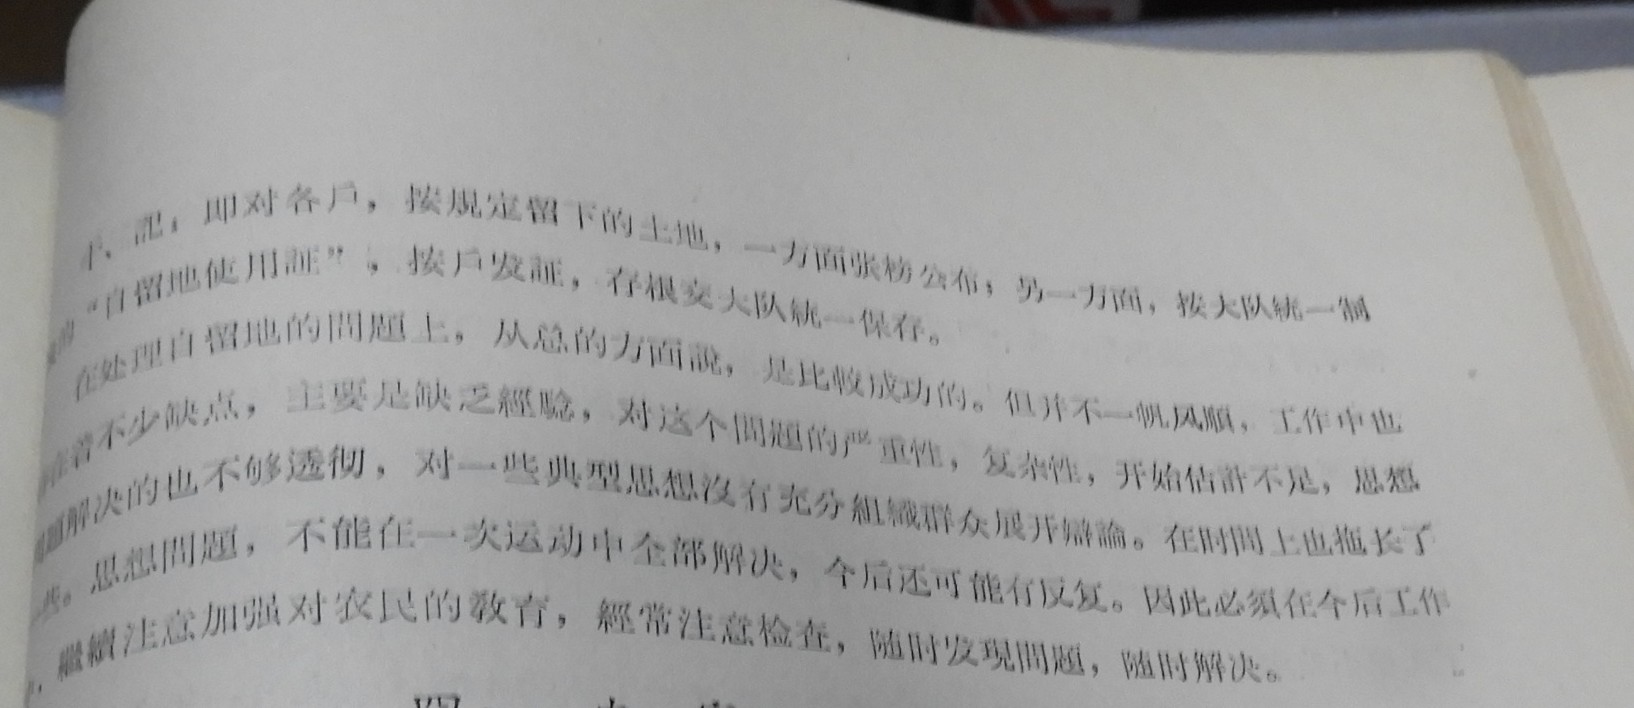 記；即对各戶，按規定留下的土地，一方面张榜公布；另一方面，按大队統一制
的“自留地使用証”，按戶发証，存根交大队統一保存。
在处理自留地的問題上，从总的方面說，是比較成功的。但并不一帆风順，工作中也
存在着不少缺点，主要是缺乏經驗，对这个問題的严重性，复杂性，开始估計不足，思想
問題解决的也不够透彻，对一些典型思想沒有充分組織群众展开辯論。在时間上也拖长了
一些。思想問題，不能在一次运动中全部解决，今后还可能有反复。因此必須在今后工作
，繼續注意加强对农民的教育，經常注意检查，随时发現問題，随时解决。